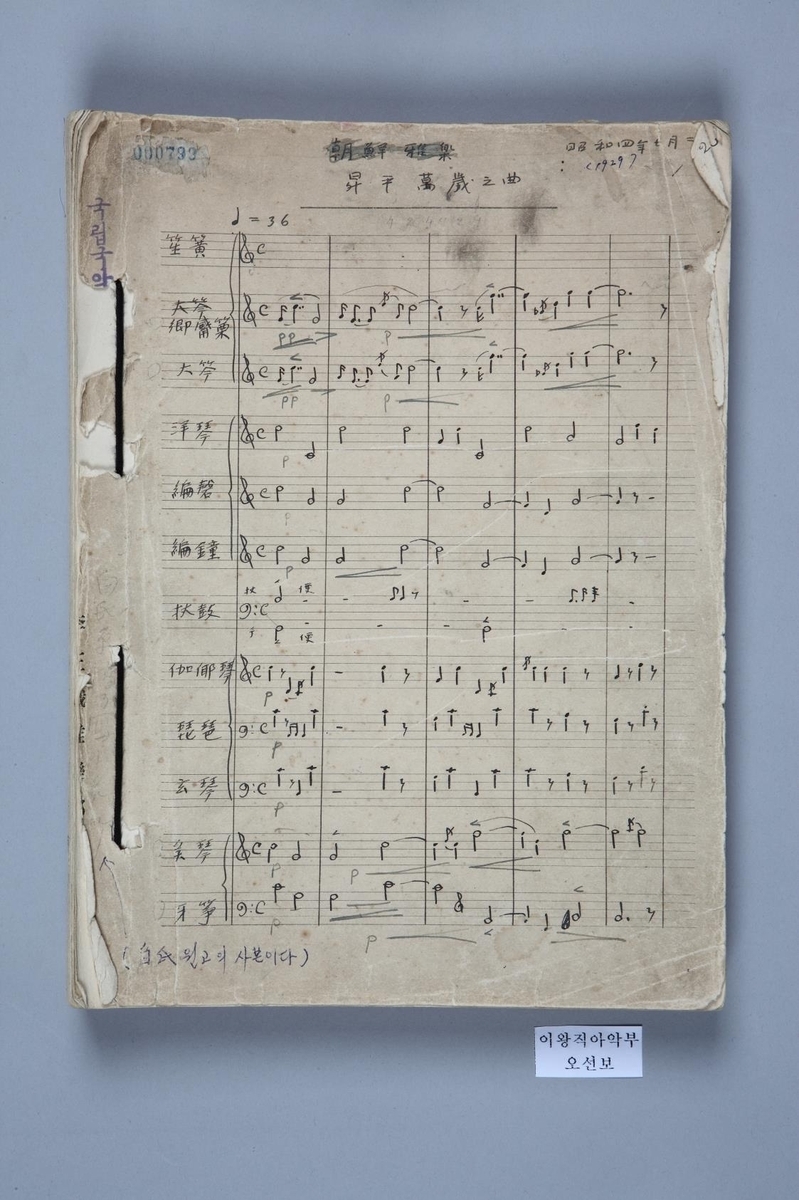 000793
朝鮮雅樂
昭和四年七月
(1929)
昇平萬歲之曲
♩ = 36
국립국악
笙簧
大笒
鄕觱篥
大笒
洋琴
編磬
編鐘
杖鼓
伽倻琴
琵琶
玄琴
奚琴
牙箏
pp
p
pp
p
p
p
p
杖 便
便
p
p
p
p
p
p
p
(白氏 원고의 사본이다)
이왕직아악부
오선보